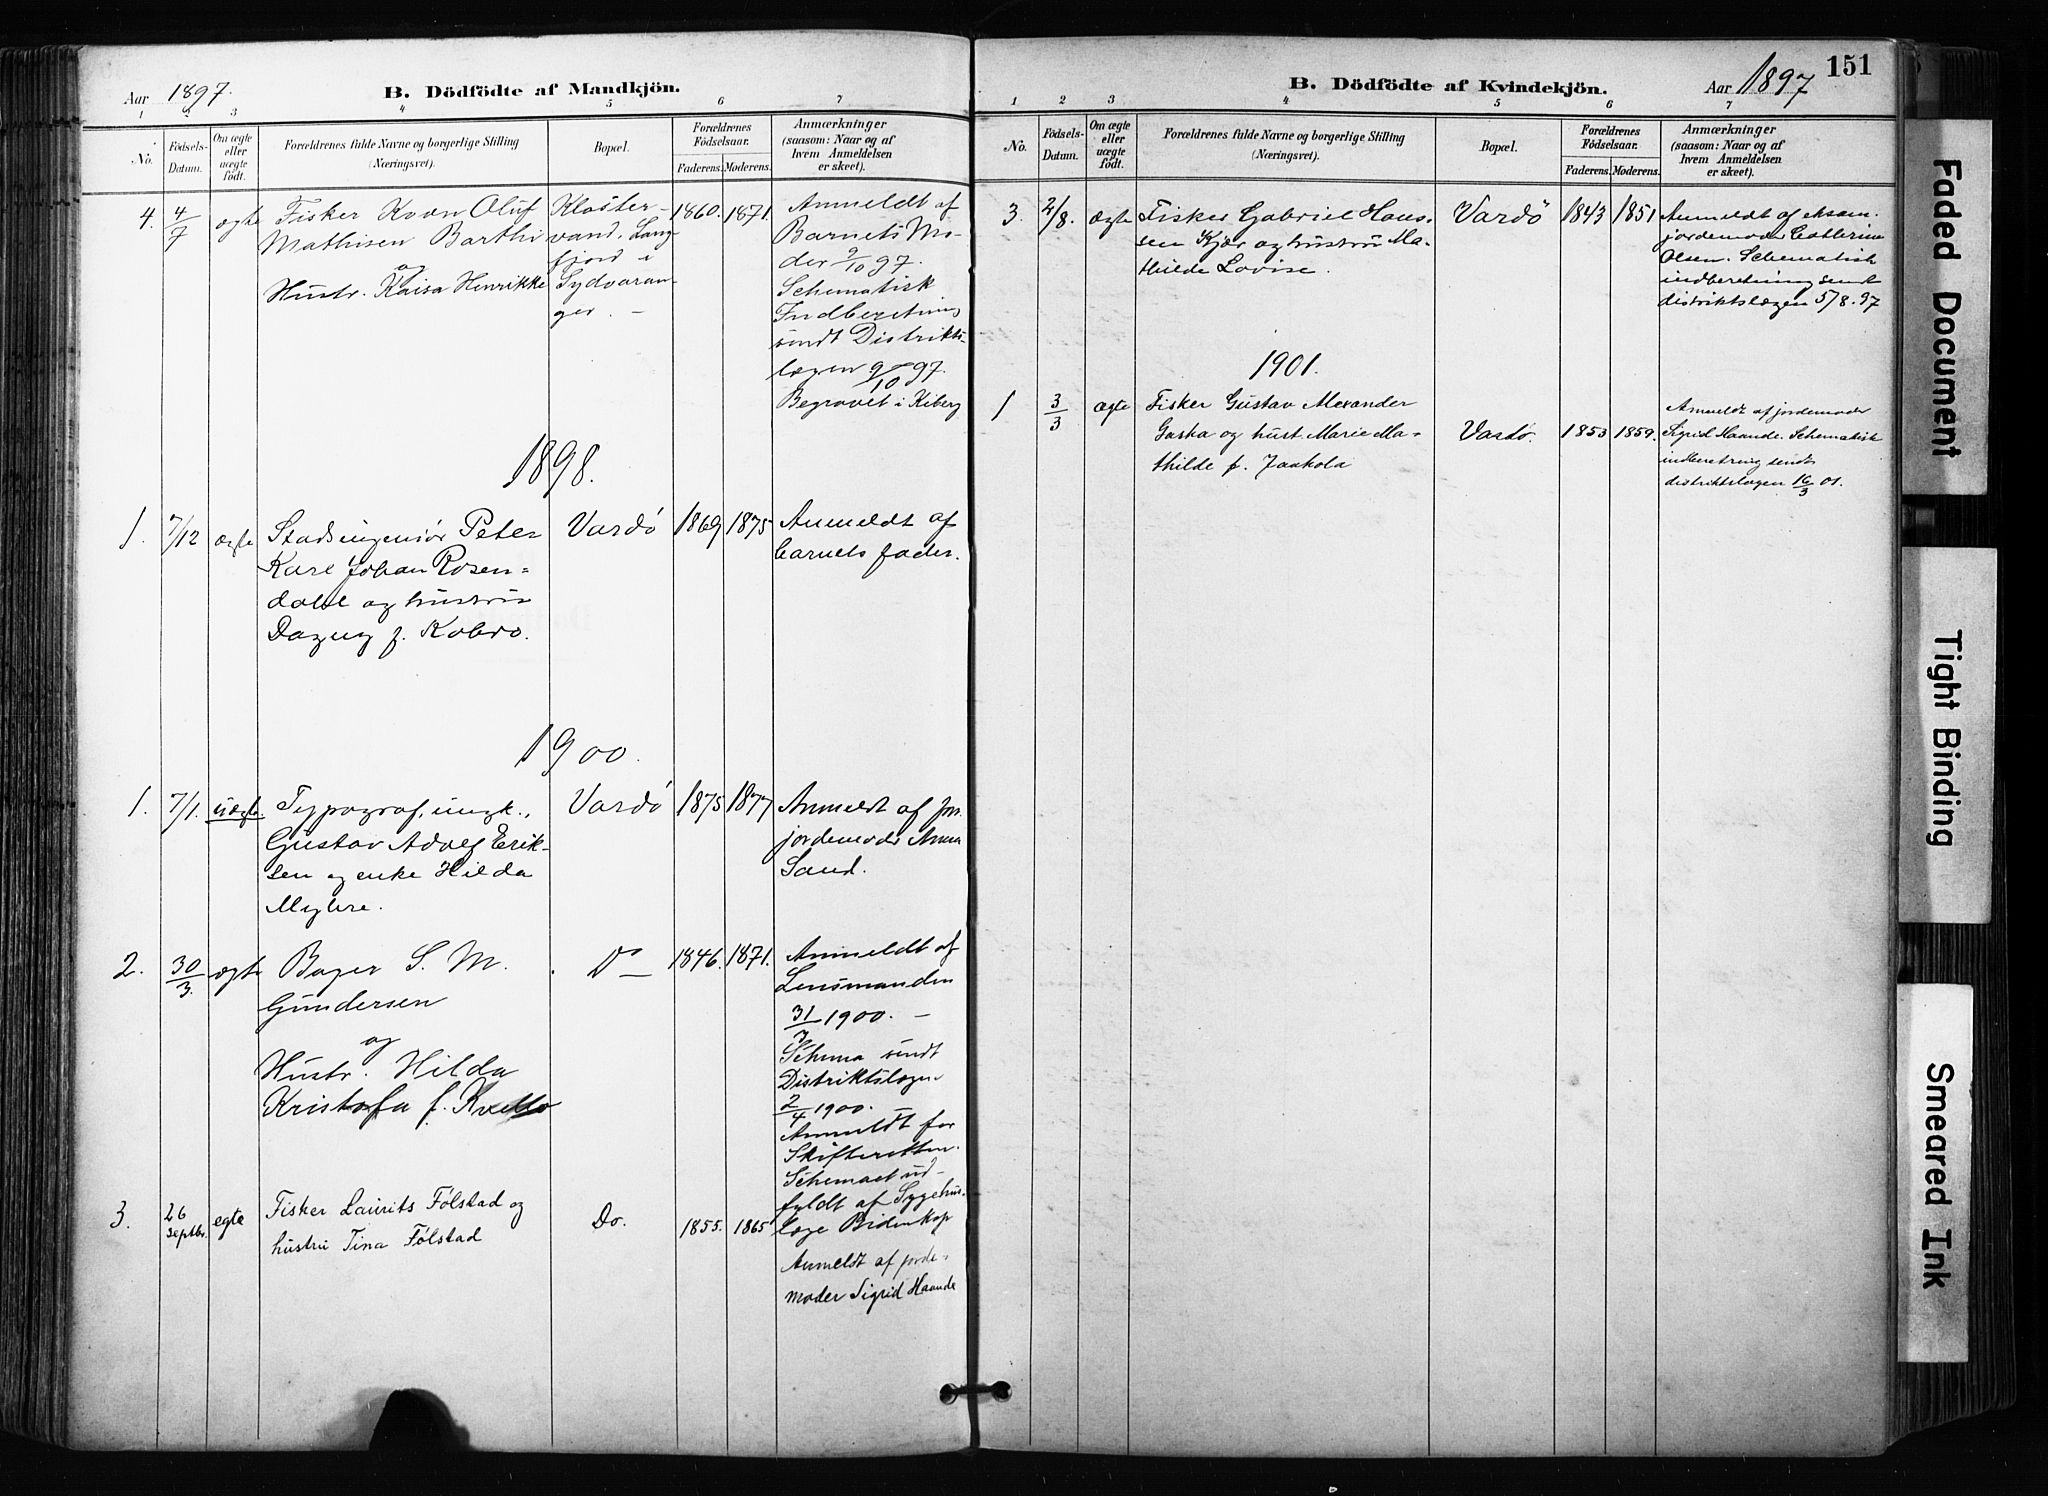 Aar 1897.
B. Dödfödte af Mandkjön.
1 2 3 4 5 6 7
No.
Födsels-
Datum.
Om ægte
eller
uægte
födt.
Forældrenes fulde Navne og borgerlige Stilling
(Næringsvei).
Bopæl.
Forældrenes
Födselsaar.
Faderens. Moderens.
Anmærkninger
(saasom: Naar og af
hvem Anmeldelsen
er skeet).
4. 4/7 ægte
Fisker Kvæn Oluf
Mathisen Barthi
og
Hustr. Kaisa Henrikke
Kloster-
vand, Lang-
fjord i
Sydvaran-
ger. -
1860. 1871.
Anmeldt af
Barnets Mo-
der 9/10 97.
Schematisk
Indberetning
sendt Distrikts-
lægen 9/10 97.
Begravet i Kiberg
1898.
1. 7/12 ægte
Stadsingeniør Peter
Karl Johan Rosen=
dahl og hustru
Dagny f. Kobro.
Vardø
1869 1875
Anmeldt af
barnets fader.
1900.
1. 7/1. uægte.
Typograf, ungk.,
Gustav Adolf Erik-
sen og enke Hilda
Myhre.
Vardø
1875 1877
Anmeldt af
jordemoder Anna
Sand.
2. 30/3. ægte
Bager S. M.
Gundersen
og
Hustr. Hilda
Kristofa f. Kvello
Do
1846. 1871.
Anmeldt af
Lensmanden
31/3 1900. -
Schema sendt
Distriktslægen
2/4 1900. -
Anmeldt for
Skifteretten.
Schemaet ud-
fyldt af Sygehus-
læge Bidenkap
3. 26 Septbr. egte
Fisker Laurits Følstad og
hustru Tina Følstad
Do.
1855. 1865
Anmeldt af jorde-
moder Sigrid Haande
151
B. Dödfödte af Kvindekjön.
Aar 1897
1 2 3 4 5 6 7
No.
Födsels-
Datum.
Om ægte
eller
uægte
födt.
Forældrenes fulde Navne og borgerlige Stilling
(Næringsvei).
Bopæl.
Forældrenes
Födselsaar.
Faderens. Moderens.
Anmærkninger
(saasom: Naar og af
hvem Anmeldelsen
er skeet).
3. 2/8. ægte
Fisker Gabriel Hans-
sen Kjær og hustru Ma-
thilde Lovise.
Vardö
1843 1851
Anmeldt af eksam.
jordemoder Cathrine
Olsen. Schematisk
indberetning sendt
distriktslægen 5/8. 97
1901.
1 3/3 ægte
Fisker Gustav Alexander
Gaska og hust. Marie Ma-
thilde f. Jaakola
Vardö.
1853 1859.
Anmeldt af jordemoder
Sigrid Haande. Schematisk
indberetning sendt
distriktslægen 16/3 01.
Faded Document
Tight Binding
Smeared Ink